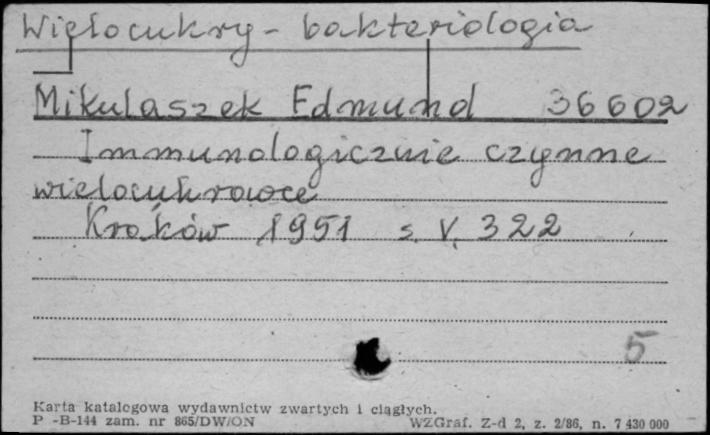 Wielocukry - bakteriologia
Mikulaszek Edmund 36602
Immunologicznie czynne
wielocukrowce
Kraków 1951 s. V, 322
5
Karta katalogowa wydawnictw zwartych i ciągłych.
P -B-144 zam. nr 865/DW/ON WZGraf. Z-d 2, z. 2/86, n. 7 430 000